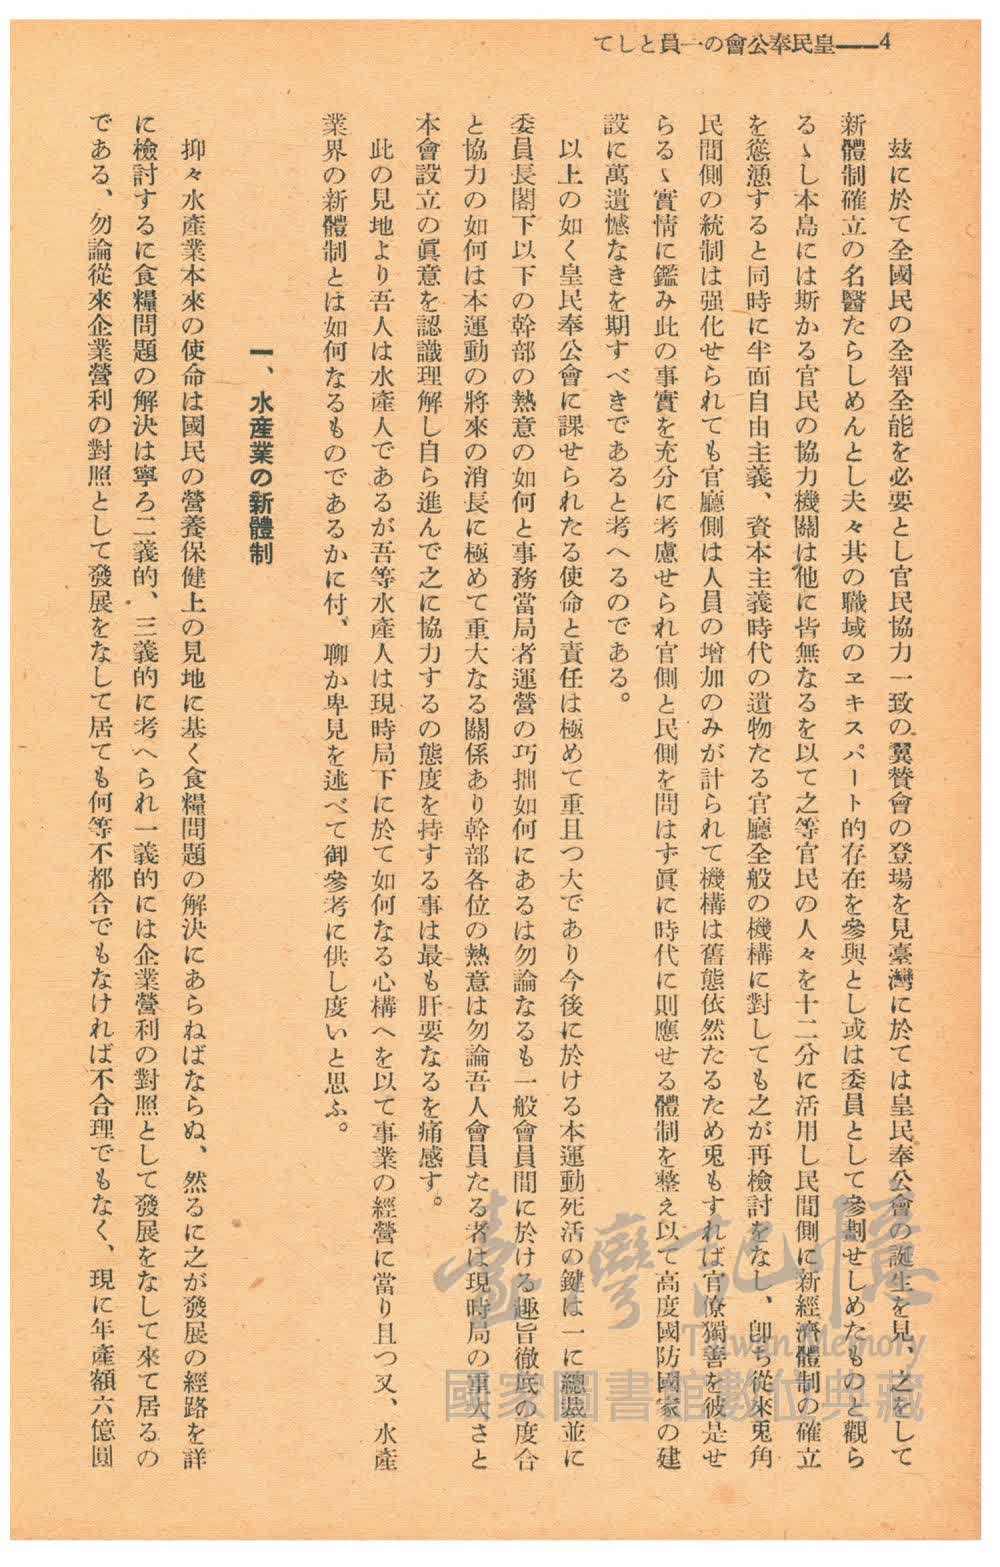 4——皇民奉公會の一員として
玆に於て全國民の全智全能を必要とし官民協力一致の翼贊會の登場を見臺灣に於ては皇民奉公會の誕生を見、之をして
新體制確立の名醫たらしめんとし夫々其の職域のヱキスパート的存在を參與とし或は委員として參劃せしめたものと觀ら
るゝし本島には斯かる官民の協力機關は他に皆無なるを以て之等官民の人々を十二分に活用し民間側に新經濟體制の確立
を慫慂すると同時に半面自由主義、資本主義時代の遺物たる官廳全般の機構に對しても之が再檢討をなし、卽ち從來兎角
民間側の統制は强化せられても官廳側は人員の增加のみが計られて機構は舊態依然たるため兎もすれば官僚獨善を彼是せ
らるゝ實情に鑑み此の事實を充分に考慮せられ官側と民側を問はず眞に時代に則應せる體制を整え以て高度國防國家の建
設に萬遺憾なきを期すべきであると考へるのである。
以上の如く皇民奉公會に課せられたる使命と責任は極めて重且つ大であり今後に於ける本運動死活の鍵は一に總裁並に
委員長閣下以下の幹部の熱意の如何と事務當局者運營の巧拙如何にあるは勿論なるも一般會員間に於ける趣旨徹底の度合
と協力の如何は本運動の將來の消長に極めて重大なる關係あり幹部各位の熱意は勿論吾人會員たる者は現時局の重大さと
本會設立の眞意を認識理解し自ら進んで之に協力するの態度を持する事は最も肝要なるを痛感す。
此の見地より吾人は水產人であるが吾等水產人は現時局下に於て如何なる心構へを以て事業の經營に當り且つ又、水產
業界の新體制とは如何なるものであるかに付、聊か卑見を述べて御參考に供し度いと思ふ。
一、水產業の新體制
抑々水產業本來の使命は國民の營養保健上の見地に基く食糧問題の解決にあらねばならぬ、然るに之が發展の經路を詳
に檢討するに食糧問題の解決は寧ろ二義的、三義的に考へられ一義的には企業營利の對照として發展をなして來て居るの
である、勿論從來企業營利の對照として發展をなして居ても何等不都合でもなければ不合理でもなく、現に年產額六億圓
臺灣記憶
Taiwan Memory
國家圖書館數位典藏